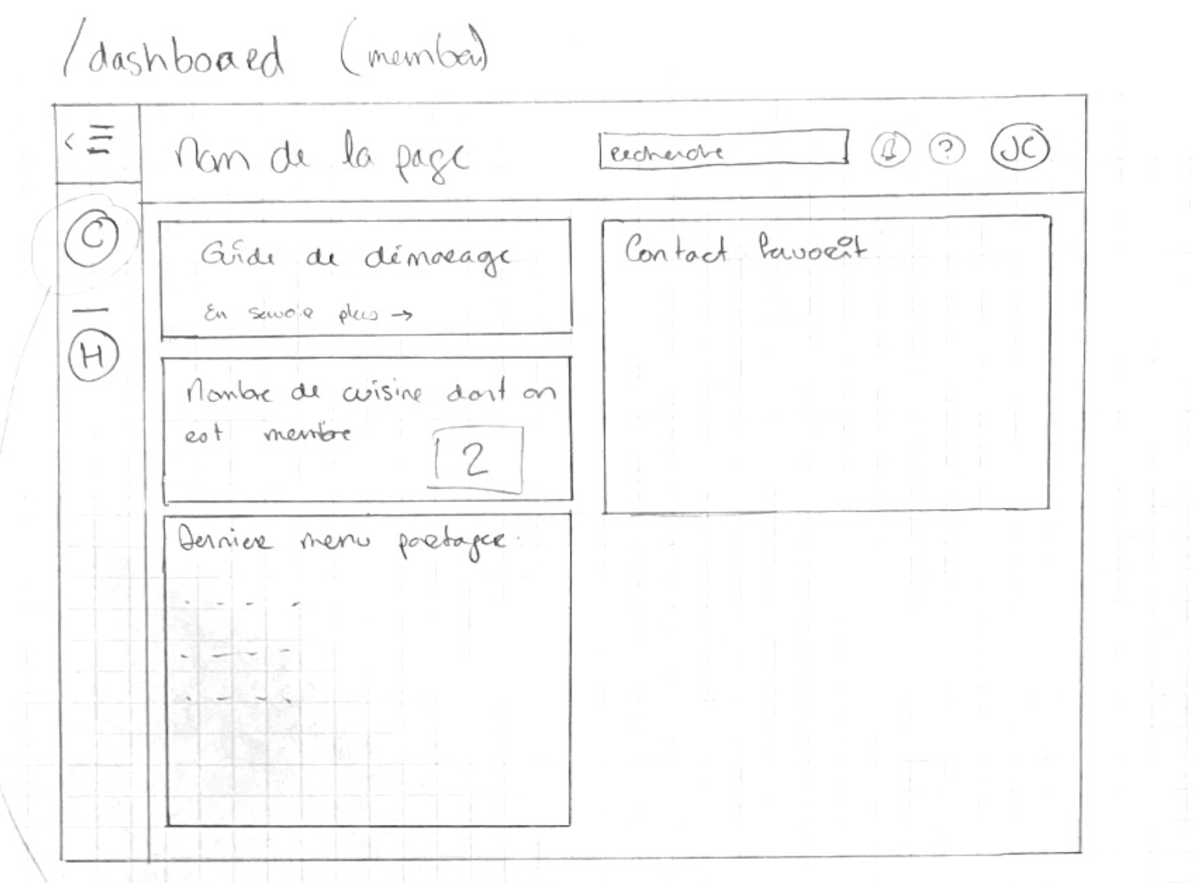 /dashboard (member)
Nom de la page
recherche
?
JC
C
Guide de démarage
En savoir plus →
H
Nombre de cuisine dont on
est membre
2
Dernier menu partager
Contact favorit